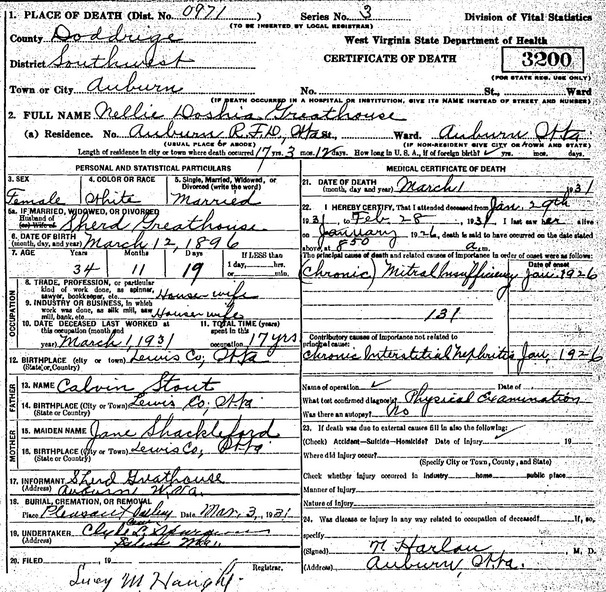 1. PLACE OF DEATH (Dist. No. 0971) Series No. 3
(TO BE INSERTED BY LOCAL REGISTRAR)
County Doddrige
District Southwest
Town or City Auburn No. St., Ward
(IF DEATH OCCURRED IN A HOSPITAL OR INSTITUTION, GIVE ITS NAME INSTEAD OF STREET AND NUMBER)
Division of Vital Statistics
West Virginia State Department of Health
CERTIFICATE OF DEATH
3200
(FOR STATE REG. USE ONLY)
2. FULL NAME Nellie Doshia Greathouse
(a) Residence. No. Auburn R.F.D. St. Ward. Auburn
(USUAL PLACE OF ABODE) (IF NON-RESIDENT GIVE CITY OR TOWN AND STATE)
Length of residence in city or town where death occurred 17 yrs. 3 mos. 12 days. How long in U. S. A., if of foreign birth? yrs. mos. days.
PERSONAL AND STATISTICAL PARTICULARS
3. SEX
Female
4. COLOR OR RACE
White
5. Single, Married, Widowed, or Divorced (write the word)
Married
5a. IF MARRIED, WIDOWED, OR DIVORCED
Husband of
(or) Wife of Sherd Greathouse
6. DATE OF BIRTH
(month, day, and year) March 12, 1896
7. AGE Years Months Days If LESS than
34 11 19 1 day, hrs.
or min.
OCCUPATION
8. TRADE, PROFESSION, or particular
kind of work done, as spinner,
sawyer, bookkeeper, etc. House wife
9. INDUSTRY OR BUSINESS, in which
work was done, as silk mill, saw
mill, bank, etc. House wife
10. DATE DECEASED LAST WORKED at
this occupation (month and
year) March 1, 1931
11. TOTAL TIME (years)
spent in this
occupation 17 yrs
12. BIRTHPLACE (city or town) Lewis Co,
(State or Country)
FATHER
13. NAME Calvin Stout
14. BIRTHPLACE (City or Town) Lewis Co,
(State or Country)
MOTHER
15. MAIDEN NAME Jane Shackleford
16. BIRTHPLACE (City or Town) Lewis Co,
(State or Country)
17. INFORMANT Sherd Greathouse
(Address) Auburn W.Va.
18. BURIAL, CREMATION, OR REMOVAL
Place Pleasant Date Mar. 3, 1931
19. UNDERTAKER
(Address)
20. FILED 19
Lucy M. Haught Registrar.
MEDICAL CERTIFICATE OF DEATH
21. DATE OF DEATH
(month, day and year) March 1 1931
22. I HEREBY CERTIFY, That I attended deceased from Jan. 29th
1931, to Feb. 28, 1931. I last saw her alive
on January 1926, death is said to have occurred on the date stated
above, at 850 a.m.
The principal cause of death and related causes of importance in order of onset were as follows:
Date of onset
(Chronic) Mitral Insufficiency Jan. 1926
131
Contributory causes of importance not related to
principal cause:
Chronic Interstitial Nephritis Jan, 1926
Name of operation Date of
What test confirmed diagnosis? Physical Examination
Was there an autopsy? No
23. If death was due to external causes fill in also the following:
(Check) Accident—Suicide—Homicide? Date of injury 19
Where did injury occur?
(Specify City or Town, County, and State)
Check whether injury occurred in industry home public place
Manner of injury
Nature of injury
24. Was disease or injury in any way related to occupation of deceased? If so,
specify
(Signed) Harlow, M. D.
(Address) Auburn,